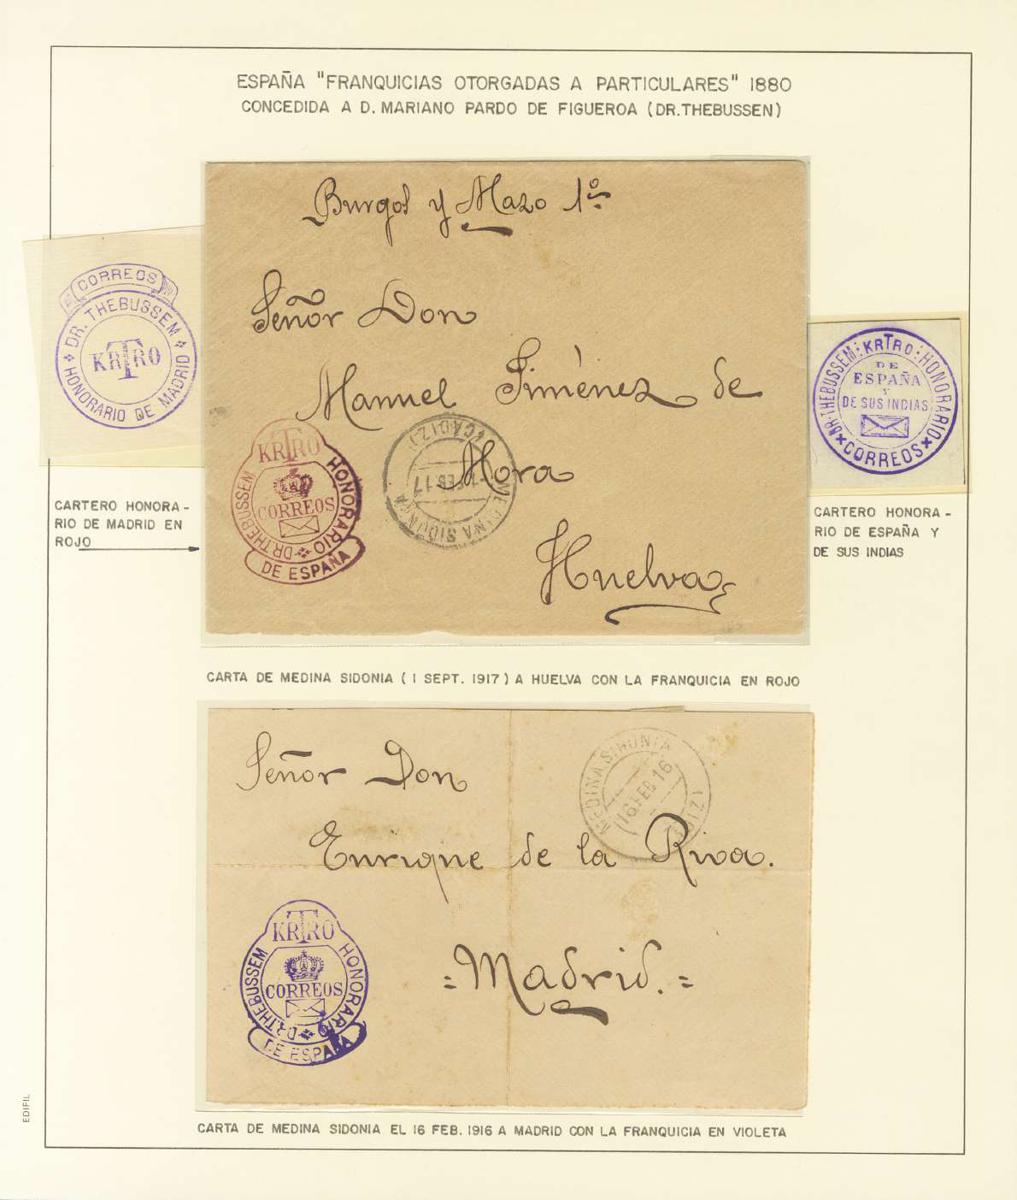 ESPAÑA "FRANQUICIAS OTORGADAS A PARTICULARES" 1880
CONCEDIDA A D. MARIANO PARDO DE FIGUEROA (DR. THEBUSSEN)
CORREOS
DR. THEBUSSEM
KRTRO
HONORARIO DE MADRID
CARTERO HONORA-
RIO DE MADRID EN
ROJO
Burgos y Mazo 1º
Señor Don
Manuel Jiménez de
Mora
Huelva
KRTRO
DR THEBUSSEM HONORARIO
CORREOS
DE ESPAÑA
MEDINA SIDONIA
17
(CADIZ)
DR. THEBUSSEM: KRTRO: HONORARIO
DE
ESPAÑA
Y
DE SUS INDIAS
CORREOS
CARTERO HONORA-
RIO DE ESPAÑA Y
DE SUS INDIAS
CARTA DE MEDINA SIDONIA (1 SEPT. 1917) A HUELVA CON LA FRANQUICIA EN ROJO
Señor Don
Enrique de la Riva.
=Madrid.=
MEDINA SIDONIA
16 FEB 16
KRTRO
DR THEBUSSEM HONORARIO
CORREOS
DE ESPAÑA
CARTA DE MEDINA SIDONIA EL 16 FEB. 1916 A MADRID CON LA FRANQUICIA EN VIOLETA
EDIFIL